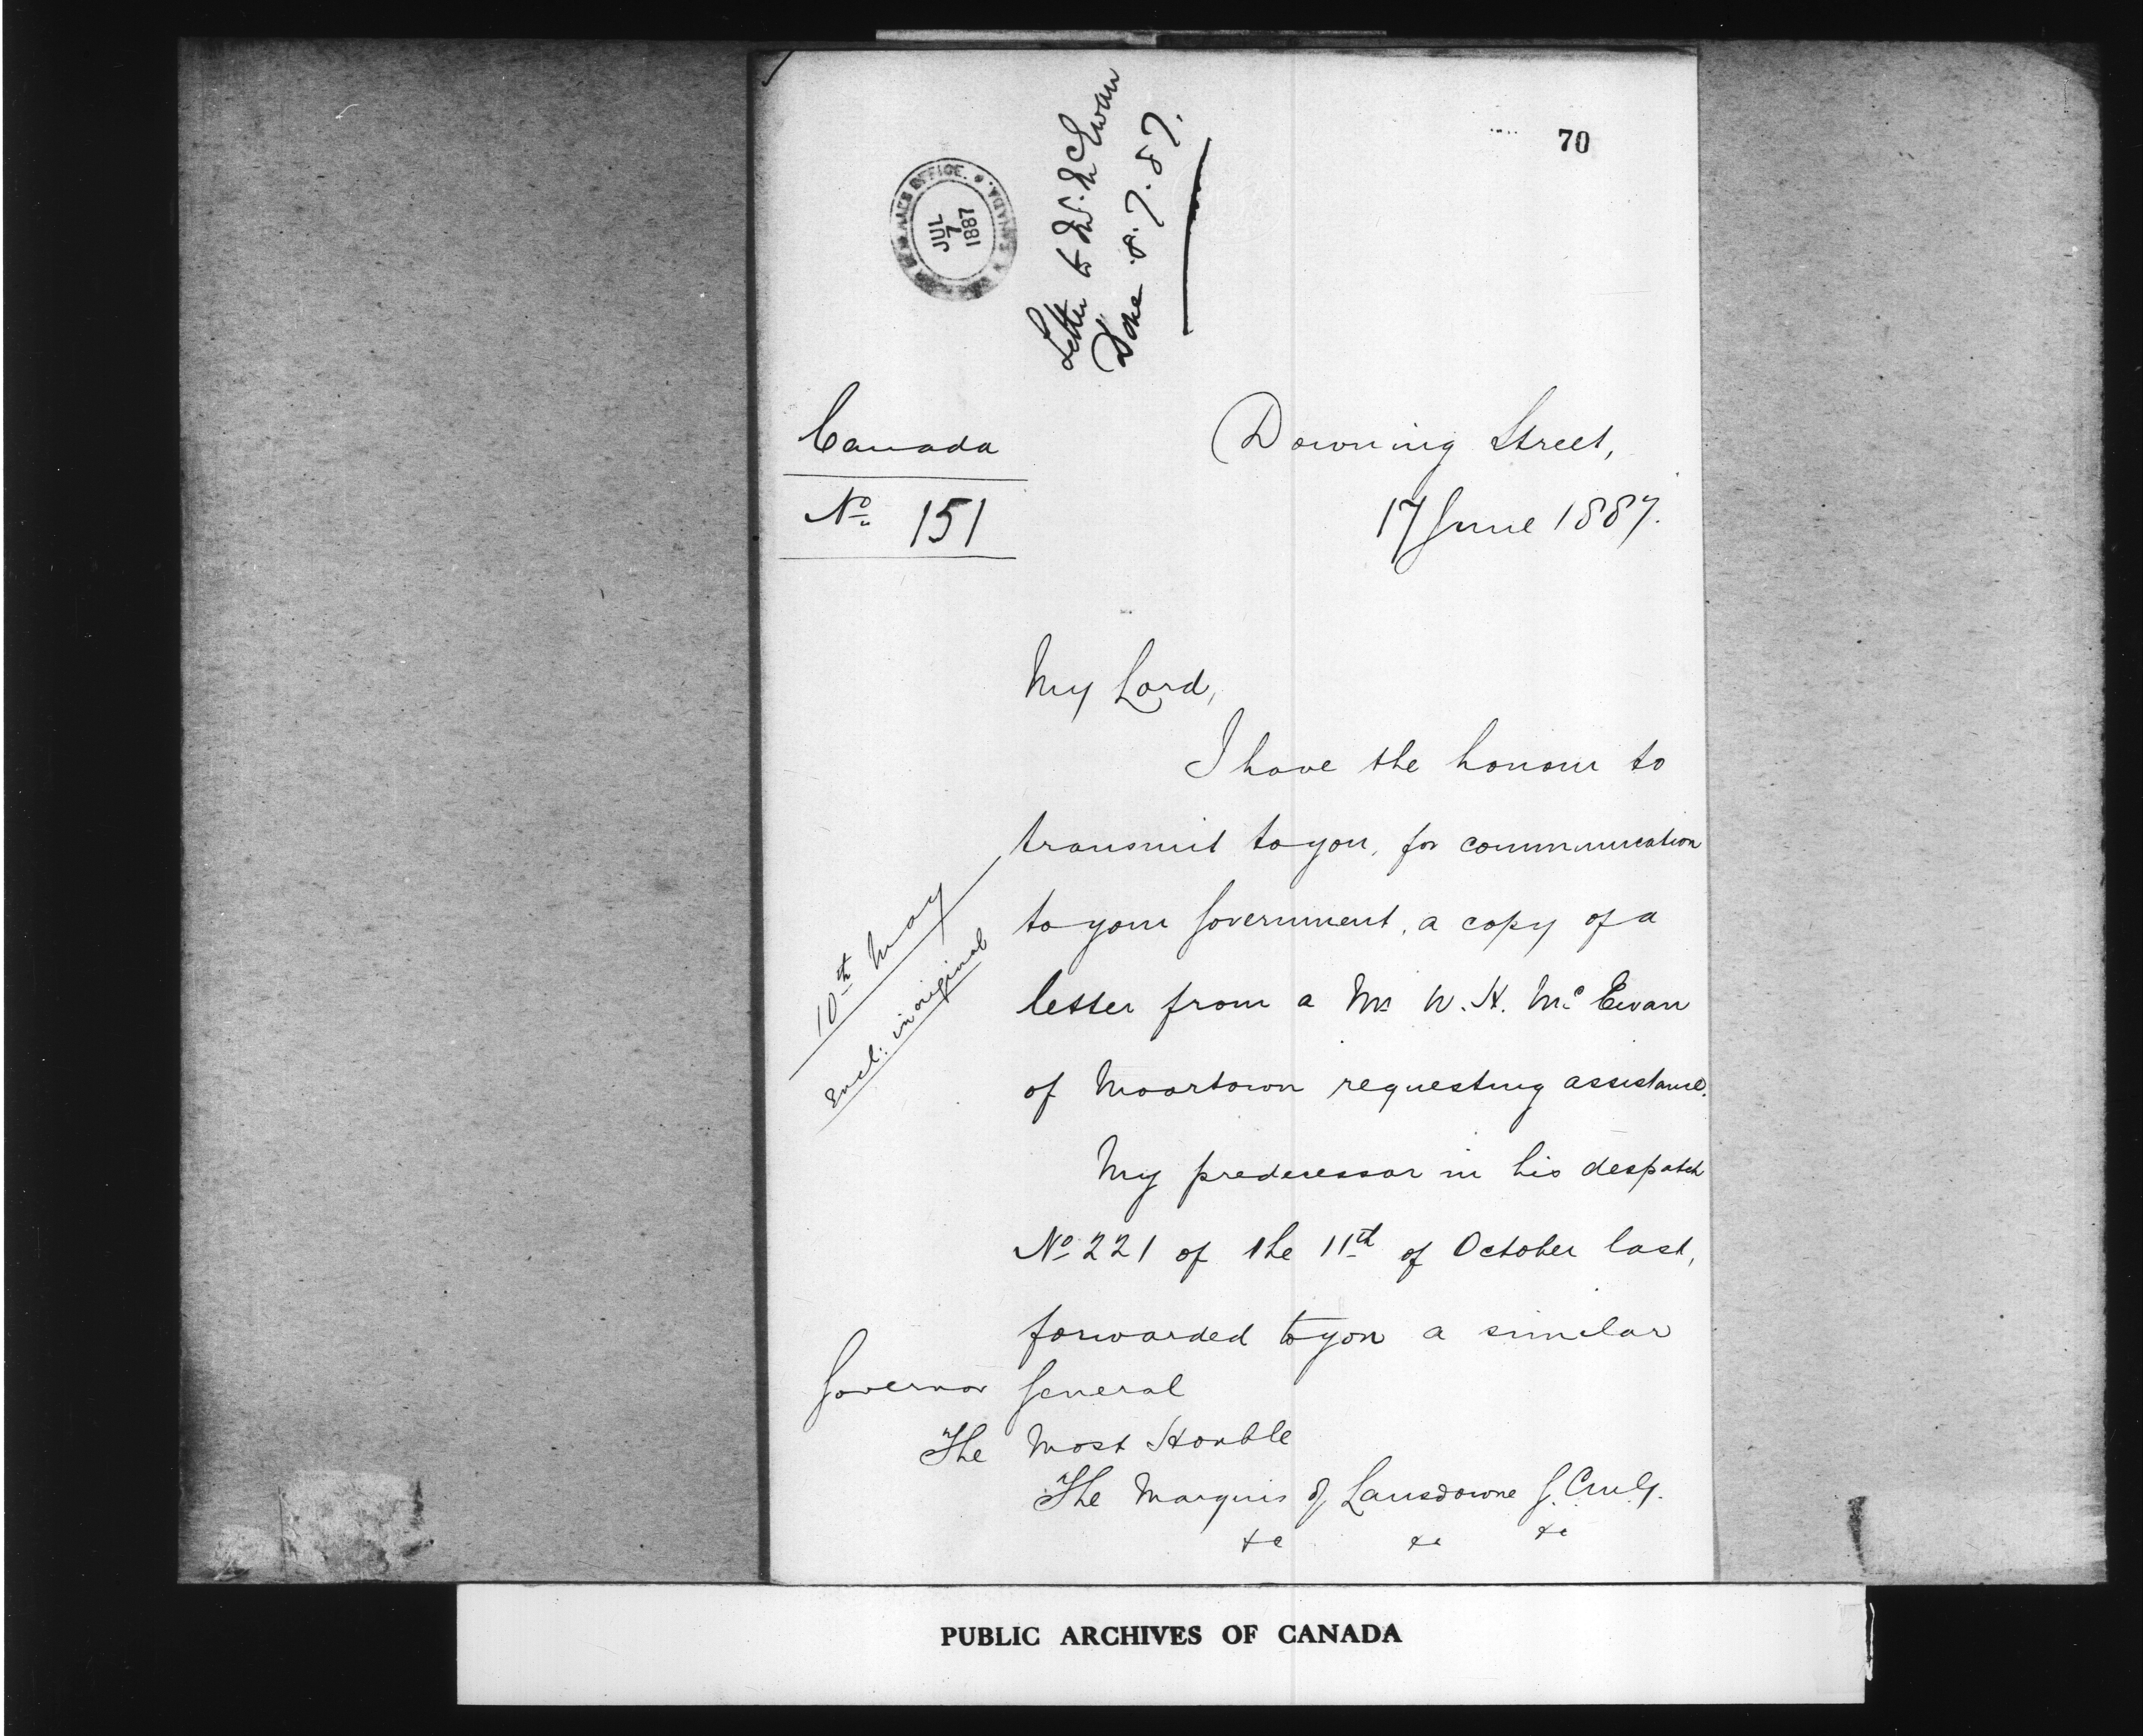 70
JUL
7
1887
Letter to W. McEwan
Done 8.7.87.
Canada
No. 151
Downing Street,
17 June 1887.
My Lord,
I have the honour to
transmit to you, for communication
to your Government, a copy of a
letter from a Mr W. H. McEwan
of Moortown requesting assistance.
10th May
Encl: in original
My predecessor in his despatch
No. 221 of the 11th of October last,
forwarded to you a similar
Governor General
The Most Honble
The Marquis of Lansdowne G.C.M.G.
&c &c &c
PUBLIC ARCHIVES OF CANADA